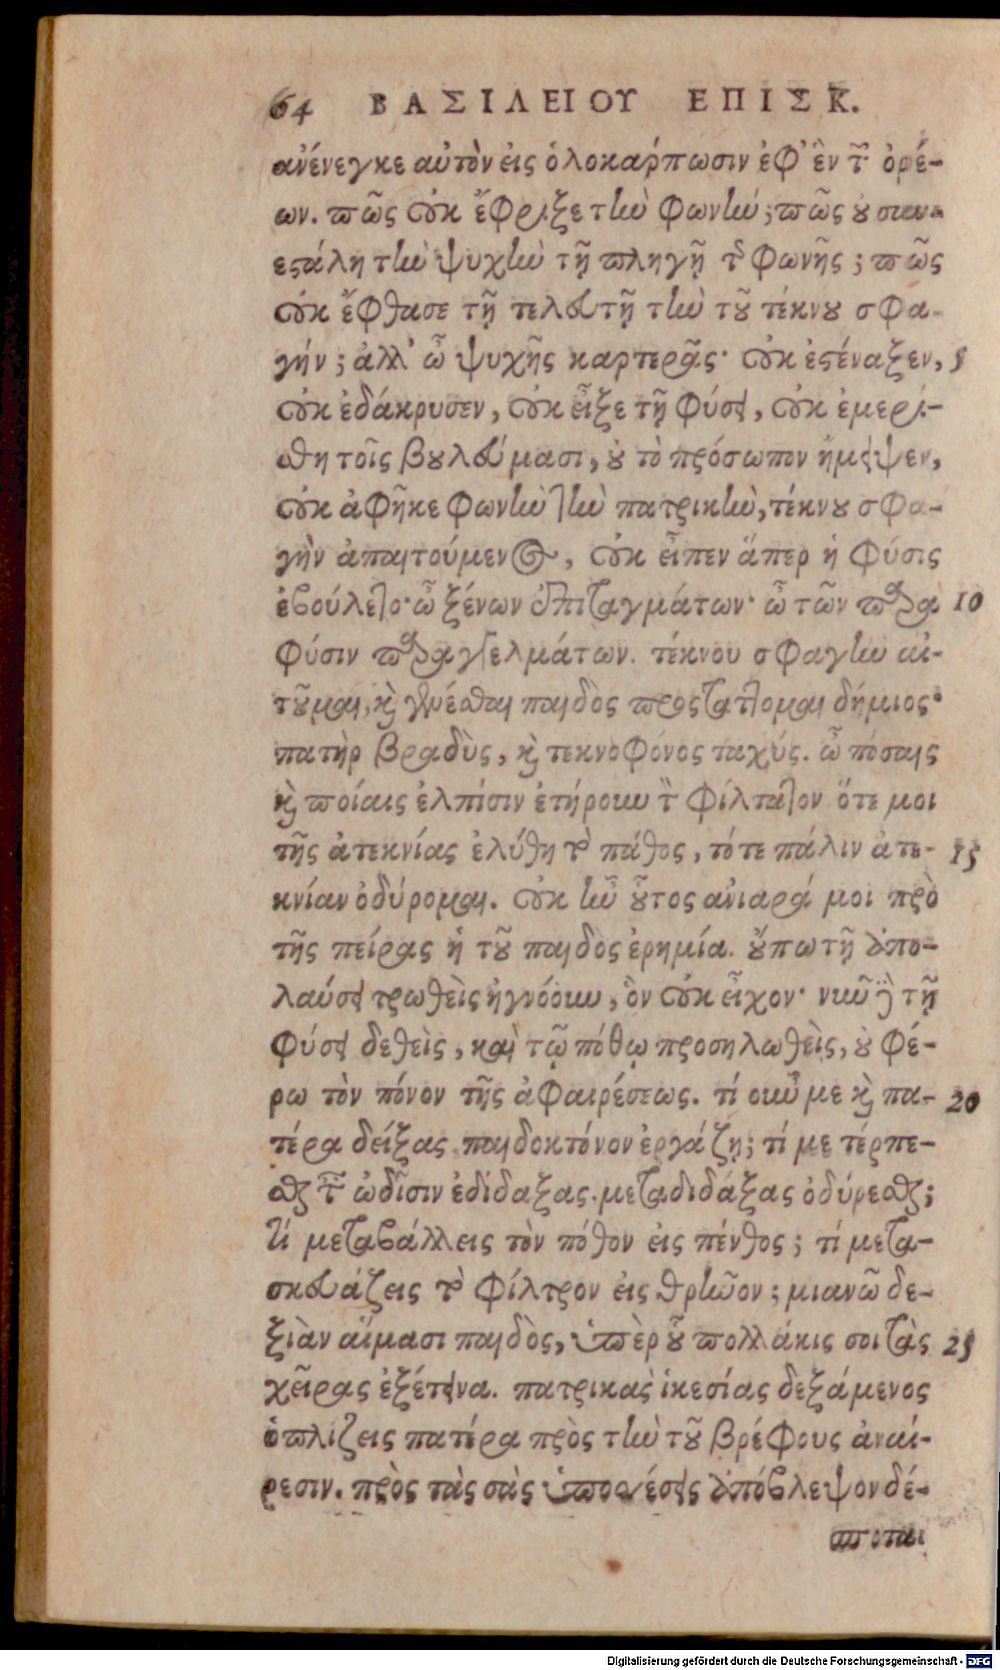 64 ΒΑΣΙΛΕΙΟΥ ΕΠΙΣΚ.
ἀνένεγκε αὐτὸν εἰς ὁλοκάρπωσιν ἐφ' ἓν τῶν ὀρέ-
ων. πῶς οὐκ ἔφριξε τὴν φωνήν; πῶς οὐ συν-
εστάλη τὴν ψυχὴν τῇ πληγῇ τῆς φωνῆς; πῶς
οὐκ ἔφθασε τῇ τελευτῇ τὴν τοῦ τέκνου σφα-
γήν; ἀλλ' ὦ ψυχῆς καρτερᾶς· οὐκ ἐστέναξεν, 5
οὐκ ἐδάκρυσεν, οὐκ εἶξε τῇ φύσει, οὐκ ἐμερί-
σθη τοῖς βουλεύμασι, οὐ τὸ πρόσωπον ἤμειψεν,
οὐκ ἀφῆκε φωνὴν τὴν πατρικὴν, τέκνου σφα-
γὴν ἀπαιτούμενος, οὐκ εἶπεν ἅπερ ἡ φύσις
ἐβούλετο· ὦ ξένων ἐπιταγμάτων· ὦ τῶν παρὰ 10
φύσιν παραγγελμάτων. τέκνου σφαγὴν αἰ-
τοῦμαι, καὶ γενέσθαι παιδὸς προστάττομαι δήμιος·
πατὴρ βραδὺς, καὶ τεκνοφόνος ταχύς. ὦ πόσαις
καὶ ποίαις ἐλπίσιν ἐτήρουν τὸν φίλτατον ὅτε μοι
τῆς ἀτεκνίας ἐλύθη τὸ πάθος, τότε πάλιν ἀτε- 15
κνίαν ὀδύρομαι. οὐκ ἦν οὕτος ἀνιαρά μοι πρὸ
τῆς πείρας ἡ τοῦ παιδὸς ἐρημία. οὔπω τῇ ἀπο-
λαύσει τρωθεὶς ἠγνόουν, ὃν οὐκ εἶχον· νῦν δὲ τῇ
φύσει δεθεὶς, καὶ τῷ πόθῳ προσηλωθεὶς, οὐ φέ-
ρω τὸν πόνον τῆς ἀφαιρέσεως. τί οὖν με καὶ πα- 20
τέρα δείξας παιδοκτόνον ἐργάζῃ; τί με τέρπε-
σθαι τῶν ὠδῖσιν ἐδίδαξας, μεταδιδάξας ὀδύρεσθαι;
τί μεταβάλλεις τὸν πόθον εἰς πένθος; τί μετα-
σκευάζεις τὸ φίλτρον εἰς θρῆνον; μιανῶ δε-
ξιὰν αἵμασι παιδὸς, ὑπὲρ οὗ πολλάκις σοι τὰς 25
χεῖρας ἐξέτεινα. πατρικὰς ἱκεσίας δεξάμενος
ὁπλίζεις πατέρα πρὸς τὴν τοῦ βρέφους ἀναί-
ρεσιν. πρὸς τὰς σὰς ὑποσχέσεις ἀπόβλεψον δέ-
σποτα
Digitalisierung gefördert durch die Deutsche Forschungsgemeinschaft - DFG